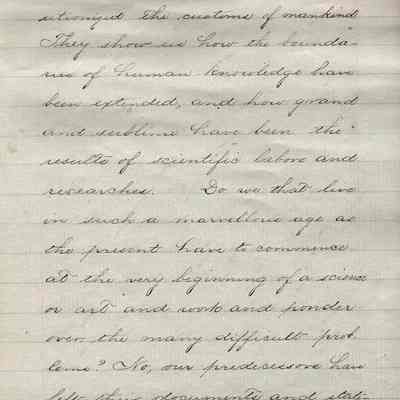 utionized the customs of mankind
They show us how the bounda-
ries of human knowledge have
been extended, and how grand
and sublime have been the
results of scientific labors and
researches. Do we that live
in such a marvellous age as
the present have to commence
at the very beginning of a science
or art and work and ponder
over the many difficult prob
lems? No, our predecessors have
left their documents and stat-